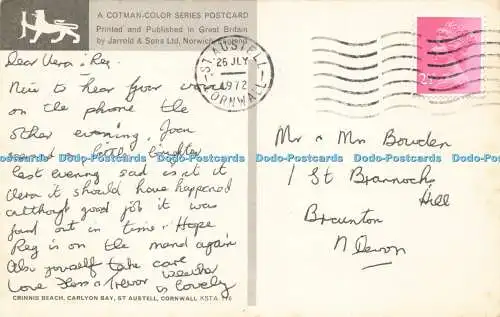 A COTMAN-COLOR SERIES POSTCARD
Printed and Published in Great Britain
by Jarrold & Sons Ltd, Norwich, England
ST AUSTELL
26 JLY
1972
CORNWALL
2½
Dear Vera & Reg.
Nice to hear your voices
on the phone the
other evening, Joan
a little brighter
last evening sad is it
Vera it should have happened
although good job it was
found out in time. Hope
Reg is on the mend again
Also yourself take care
Love Jess & Trevor weather
is lovely
CRINNIS BEACH, CARLYON BAY, ST AUSTELL, CORNWALL KSTA 116
Mr & Mrs Bowden
1 St Brannocks
Hill
Braunton
N Devon
Dodo-Postcards Dodo-Postcards Dodo-Postcards Dodo-Postcards Dodo-Postcards